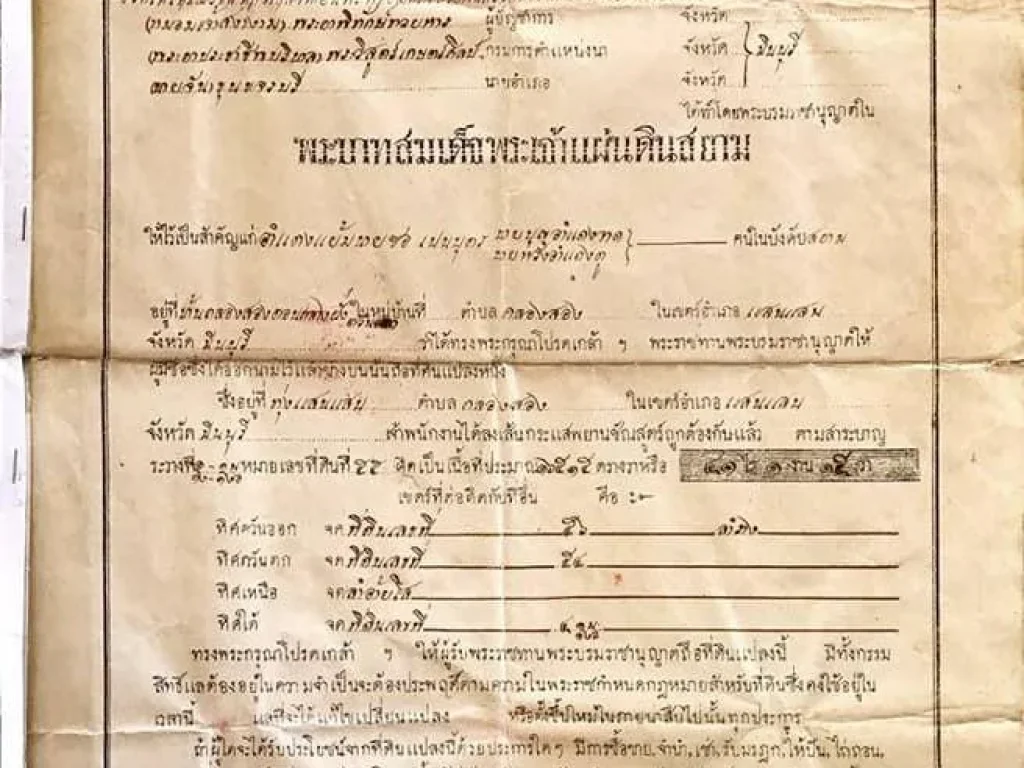 (ถนอม เจาสังขาม) พระยาพิทักษ์ทวยหาญ ผู้บัญชาการ จังหวัด
(พระยาประชาชีพบริบาล) พระวิสูตรเกษตรศิลป กรมการตำแหน่งนา จังหวัด มีนบุรี
(นายจัน) ขุนขจรบุรี นายอำเภอ จังหวัด
ได้ทำโดยพระบรมราชานุญาตใน
พระบาทสมเด็จพระเจ้าแผ่นดินสยาม
ให้ไว้เป็นสำคัญแก่ อำแดงแย้ม นายช่อ เปนบุตร นายบุญ อำแดงทด คนในบังคับสยาม
นายหวัง อำแดงดู
อยู่ที่ คลองสองตอนกลางฝั่ง ในหมู่บ้านที่ ตำบล คลองสอง ในเขตร์อำเภอ แสนแสบ
จังหวัด มีนบุรี ว่าได้ทรงพระกรุณาโปรดเกล้า ฯ พระราชทานพระบรมราชานุญาตให้
ผู้มีชื่อซึ่งได้ออกนามไว้แล้วข้างบนนั้นถือที่ดินแปลงหนึ่ง
ซึ่งอยู่ที่ ทุ่งแสนแสบ ตำบล คลองสอง ในเขตร์อำเภอ แสนแสบ
จังหวัด มีนบุรี เจ้าพนักงานได้ลงเส้นกระแสพยานชัณสูตร์ถูกต้องกันแล้ว ตามสาระบาญ
ระวางที่ หมายเลขที่ดินที่ ๕๕ คิดเป็นเนื้อที่ประมาณ ๑๖๕๑๕ ตารางวาหรือ ๔๑ ไร่ ๑ งาน ๑๕ วา
เขตร์ที่ต่อติดกับที่อื่น คือ :—
ทิศตวันออก จด ที่ดินเลขที่ ๕๖ ลำราง
ทิศตวันตก จด ที่ดินเลขที่ ๕๔
ทิศเหนือ จด
ทิศใต้ จด ที่ดินเลขที่ ๔
ทรงพระกรุณาโปรดเกล้า ฯ ให้ผู้รับพระราชทานพระบรมราชานุญาตถือที่ดินแปลงนี้ มีทั้งกรรม
สิทธิ์แลต้องอยู่ในความจำเป็นจะต้องประพฤติตามความในพระราชกำหนดกฎหมายสำหรับที่ดินซึ่งคงใช้อยู่ใน
เวลานี้ แลที่จะได้แก้ไขเปลี่ยนแปลง หรือตั้งขึ้นใหม่ในภายน่าสืบไปนั้นทุกประการ
ถ้าผู้ใดจะได้รับประโยชน์จากที่ดินแปลงนี้ด้วยประการใด ๆ มีการซื้อขาย, จำนำ, เช่า, รับมรฎก, ให้ปัน, ไถ่ถอน,